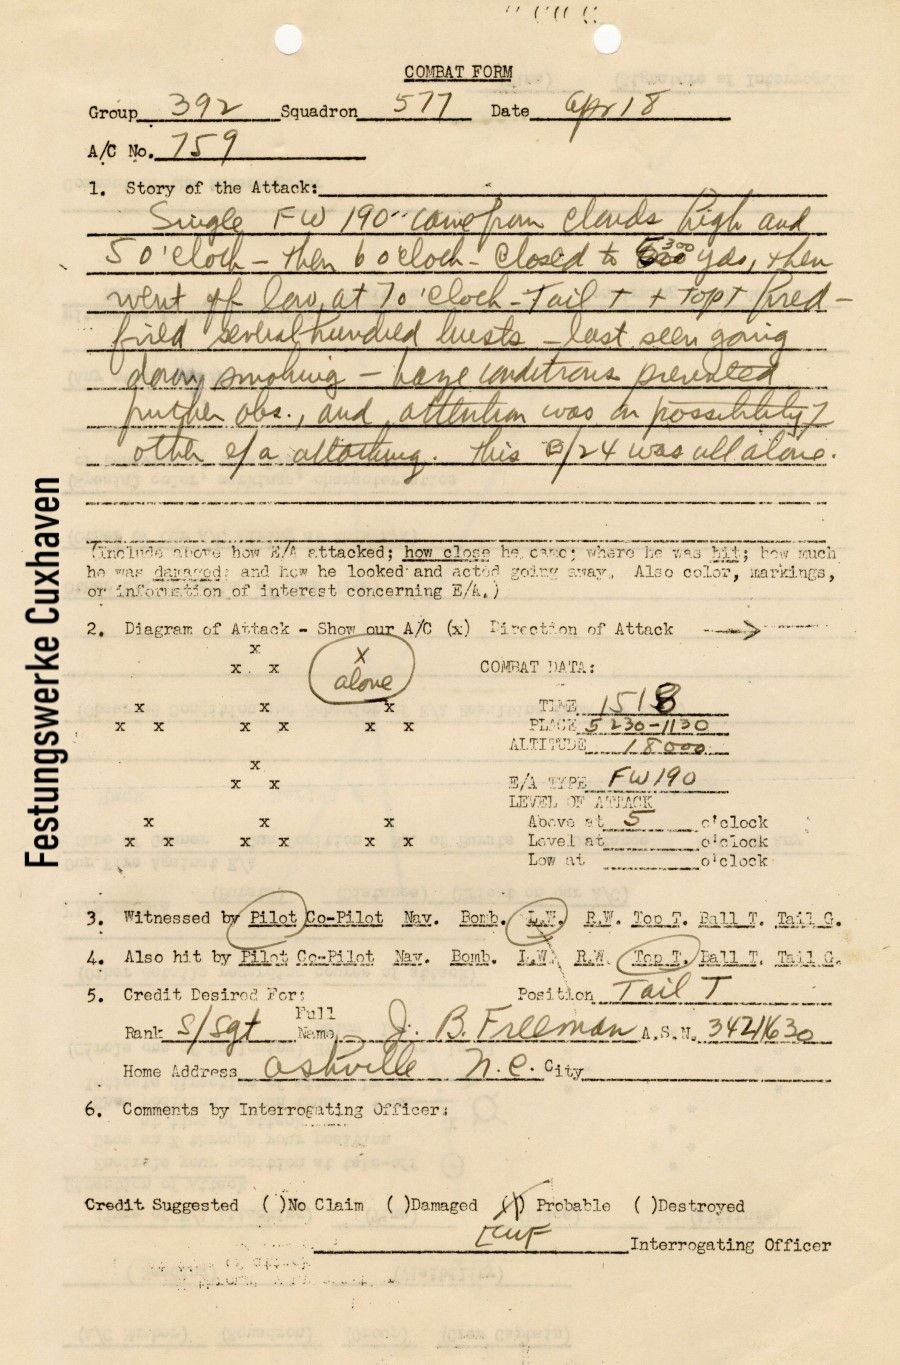 COMBAT FORM
Group 392 Squadron 577 Date Apr 18
A/C No. 759
1. Story of the Attack:
Single FW 190 came from clouds high and
5 o'clock - then 6 o'clock - closed to 300 yds, then
went off low, at 7 o'clock - Tail T + Top T fired -
fired several hundred bursts - last seen going
down smoking - haze conditions prevented
further obs., and attention was on possibility of
other e/a attacking. This B/24 was all alone.
(Include above how E/A attacked; how close he came; where he was hit; how much
he was damaged; and how he looked and acted going away. Also color, markings,
or information of interest concerning E/A.)
Festungswerke Cuxhaven
2. Diagram of Attack - Show our A/C (x) Direction of Attack
x
x x
x
alone
COMBAT DATA:
x x x
x x x x x x
TIME 1518
PLACE 5230-1130
ALTITUDE 18000
x
x x
E/A TYPE FW190
LEVEL OF ATTACK
x x x
x x x x x x
Above at 5 o'clock
Level at o'clock
Low at o'clock
3. Witnessed by Pilot Co-Pilot Nav. Bomb. L.W. R.W. Top T. Ball T. Tail G.
4. Also hit by Pilot Co-Pilot Nav. Bomb. L.W. R.W. Top T. Ball T. Tail G.
5. Credit Desired For: Position Tail T
Rank S/Sgt Full Name J. B. Freeman A.S.N. 34211630
Home Address Ashville N.C. City
6. Comments by Interrogating Officer:
Credit Suggested ( )No Claim ( )Damaged (X) Probable ( )Destroyed
Interrogating Officer